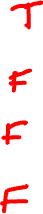 T
F
F
F